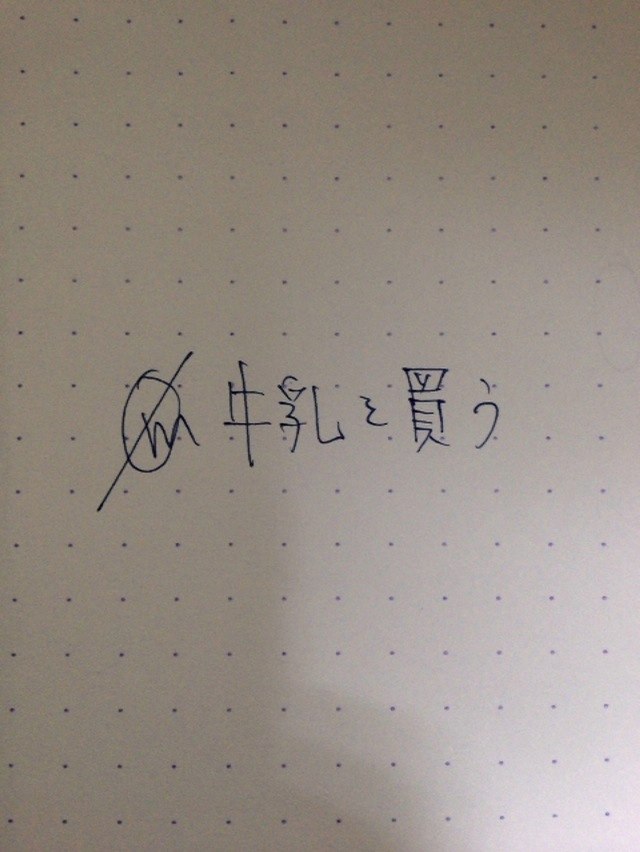 牛乳を買う